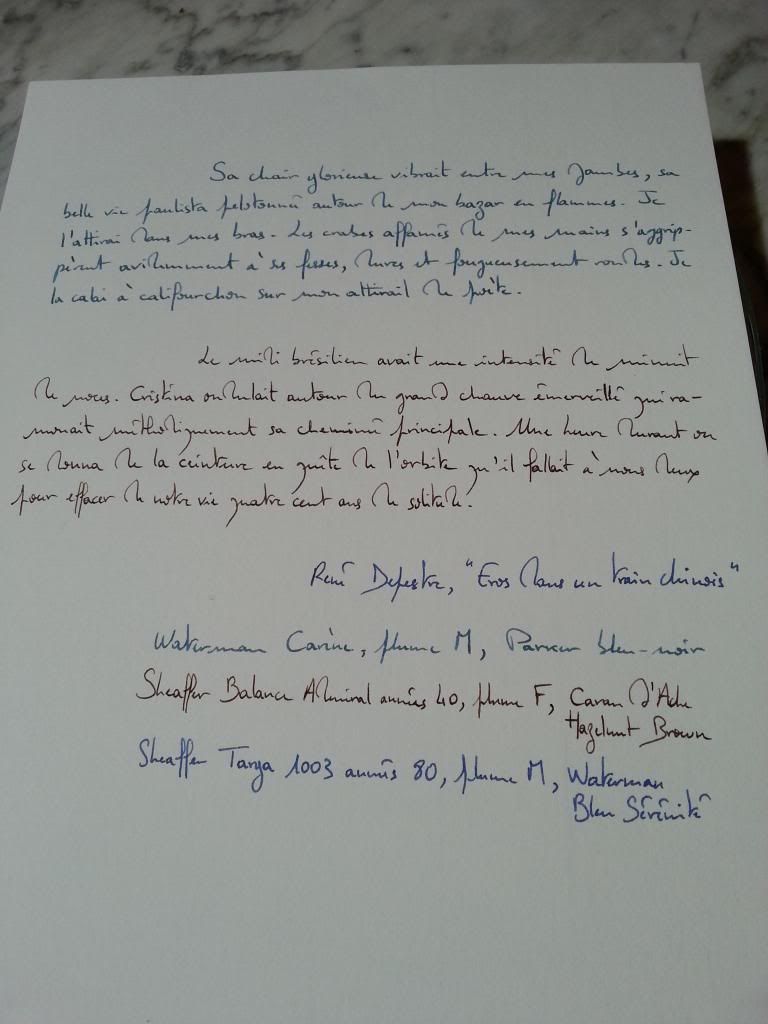 Sa chair glorieuse vibrait entre mes jambes, sa
belle vie paulista pelotonnée autour de mon bazar en flammes. Je
l'attirai dans mes bras. Les crabes affamés de mes mains s'aggrip-
pèrent avidemment à ses fesses, dures et fougueusement rondes. Je
la calai à califourchon sur mon attirail de poète.
Le midi brésilien avait une intensité de minuit
de noces. Cristina ondulait autour du grand chauve émerveillé qui ra-
monait méthodiquement sa cheminée principale. Une heure durant on
se donna de la ceinture en quête de l'orbite qu'il fallait à nous deux
pour effacer de notre vie quatre cent ans de solitude.
René Depestre, "Eros dans un train chinois"
Waterman Carène, plume M, Parker bleu-noir
Sheaffer Balance Admiral années 40, plume F, Caran d'Ache
Hazelnut Brown
Sheaffer Targa 1003 années 80, plume M, Waterman
Bleu Sérénité